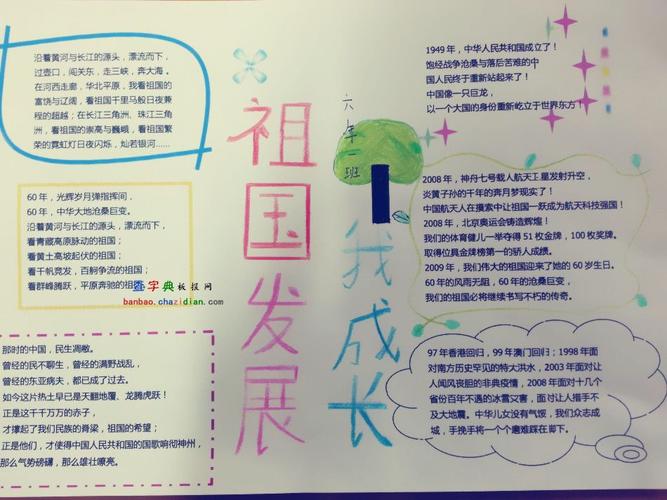 沿着黄河与长江的源头，漂流而下，
过壶口，闯关东，走三峡，奔大海。
在河西走廊，华北平原，我看祖国的
富饶与辽阔，看祖国千里马般日夜兼
程的超越；在长江三角洲、珠江三角
洲，看祖国的崇高与巍峨，看祖国繁
荣的霓虹灯日夜闪烁，灿若银河……
60 年，光辉岁月弹指挥间，
60 年，中华大地沧桑巨变。
沿着黄河奔流的方向看中国：
看青藏高原脉动的祖国；
看黄土高坡起伏的祖国；
看千帆竞发，百舸争流的祖国；
看群峰腾跃，平原奔驰的祖
查字典板报网
banbao.chazidian.com
那时的中国，民生凋敝。
曾经的民不聊生，曾经的满野战乱，
曾经的东亚病夫，都已成了过去。
如今这片热土早已是天翻地覆、龙腾虎跃！
正是这千千万万的赤子，
才撑起了我们民族的脊梁，祖国的希望；
正是他们，才使得中国人民共和国的国歌响彻神州，
那么气势磅礴，那么雄壮嘹亮。
祖国发展
六年一班
我成长
1949 年，中华人民共和国成立了！
饱经战争沧桑与落后苦难的中
国人民终于重新站起来了！
中国像一只巨龙，
以一个大国的身份重新屹立于世界东方！
2008 年，神舟七号载人航天王星发射升空，
炎黄子孙的千年的奔月梦现实了！
中国航天人在摸索中让祖国一跃成为航天科技强国！
2008 年，北京奥运会铸造辉煌！
我们的体育健儿一举夺得 51 枚金牌，100 枚奖牌。
取得位具金牌榜第一的骄人成绩。
2009 年，我们伟大的祖国迎来了她的 60 岁生日。
60 年的风雨无阻，60 年的沧桑巨变，
我们的祖国必将继续书写不朽的传奇。
97 年香港回归，99 年澳门回归；1998 年面
对南方历史罕见的特大洪水，2003 年面对让
人闻风丧胆的非典疫情，2008 年面对十几个
省份百年不遇的冰雪灾害，面对让人措手不
及大地震。中华儿女没有气馁，我们众志成
城，手挽手将一个个磨难踩在脚下。